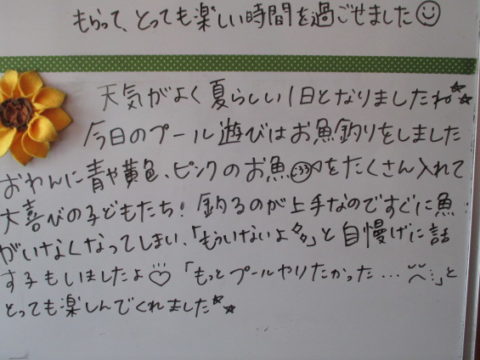 もらって、とっても楽しい時間を過ごせました☺
天気がよく夏らしい1日となりましたね☆☆
今日のプール遊びはお魚釣りをしました
おわんに青や黄色、ピンクのお魚をたくさん入れて
大喜びの子どもたち!釣るのが上手なのですぐに魚
がいなくなってしまい、「もういないよ〜」と自慢げに話
す子もいましたよ♡「もっとプールやりたかった…」と
とっても楽しんでくれました☆☆